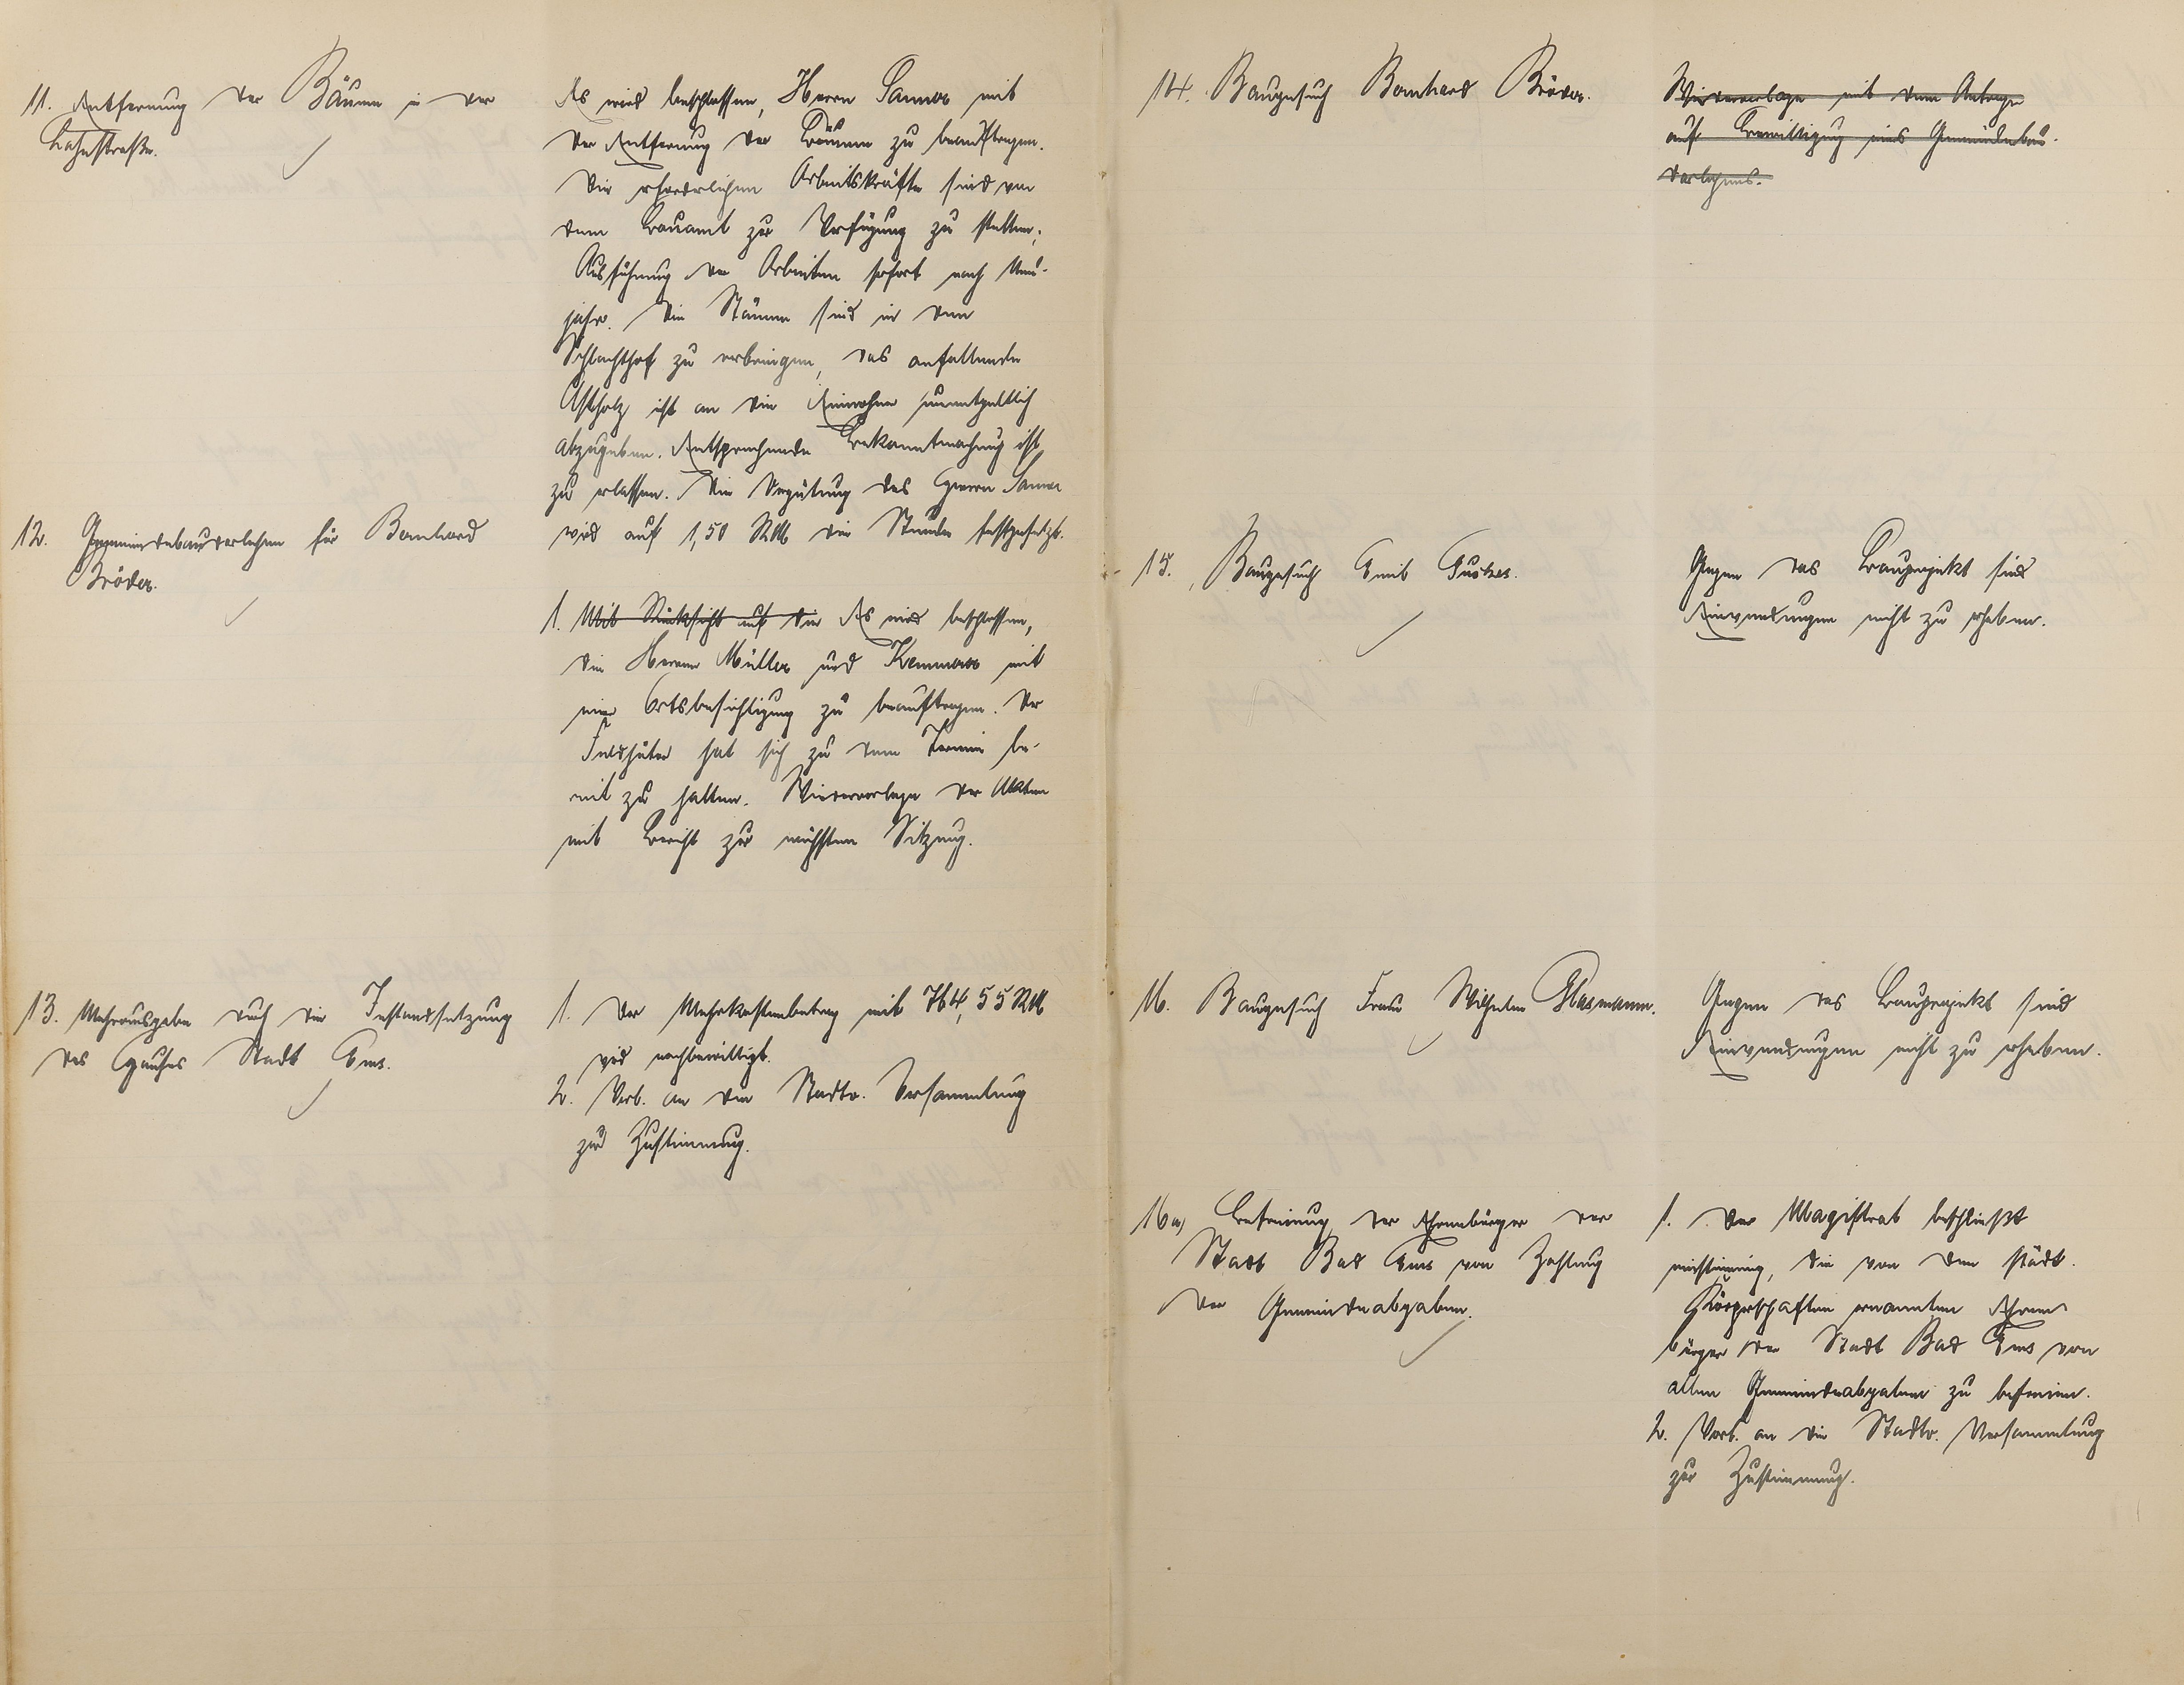 11. Entfernung der Bäume in der
Lahnstraße.
Es wird beschlossen, Herrn Sanner mit
der Entfernung der Bäume zu beauftragen.
Die erforderlichen Arbeitskräfte sind von
dem Bauamt zur Verfügung zu stellen;
Ausführung der Arbeiten sofort nach Neu-
jahr. Die Stämme sind in den
Schlachthof zu verbringen, das anfallende
Astholz ist an die Einwohner unentgeltlich
abzugeben. Entsprechende Bekanntmachung ist
zu erlassen. Die Vergütung des Herrn Sanner
wird auf 1,50 RM die Stunde festgesetzt.
12. Gemeindebaudarlehen für Bernhard
Bröder.
1. Mit Rücksicht auf die Es wird beschlossen,
die Herren Müller und Kemmerer mit
einer Ortsbesichtigung zu beauftragen. Der
Feldhüter hat sich zu dem Termin be-
reit zu halten. Wiedervorlage der Akten
mit Bericht zur nächsten Sitzung.
13. Mehrausgabe durch die Instandsetzung
des Hauses Stadt Ems.
1. Der Mehrkostenbetrag mit 764,55 RM
wird nachbewilligt.
2. Verb. an die Stadtv. Versammlung
zur Zustimmung.
14. Baugesuch Bernhard Bröder.
Wiedervorlage mit dem Antrage
auf Bewilligung eines Gemeindebau-
darlehens.
15. Baugesuch Emil
Gegen das Bauprojekt sind
Einwendungen nicht zu erheben.
16. Baugesuch Frau Wilhelm Glasmann.
Gegen das Bauprojekt sind
Einwendungen nicht zu erheben.
16a) Befreiung der Ehrenbürger der
Stadt Bad Ems von Zahlung
der Gemeindeabgaben.
1. Der Magistrat beschließt
einstimmig, die von den städt.
Körperschaften ernannten Ehren
bürger der Stadt Bad Ems von
allen Gemeindeabgaben zu befreien.
2. Verb. an die Stadtv. Versammlung
zur Zustimmung.